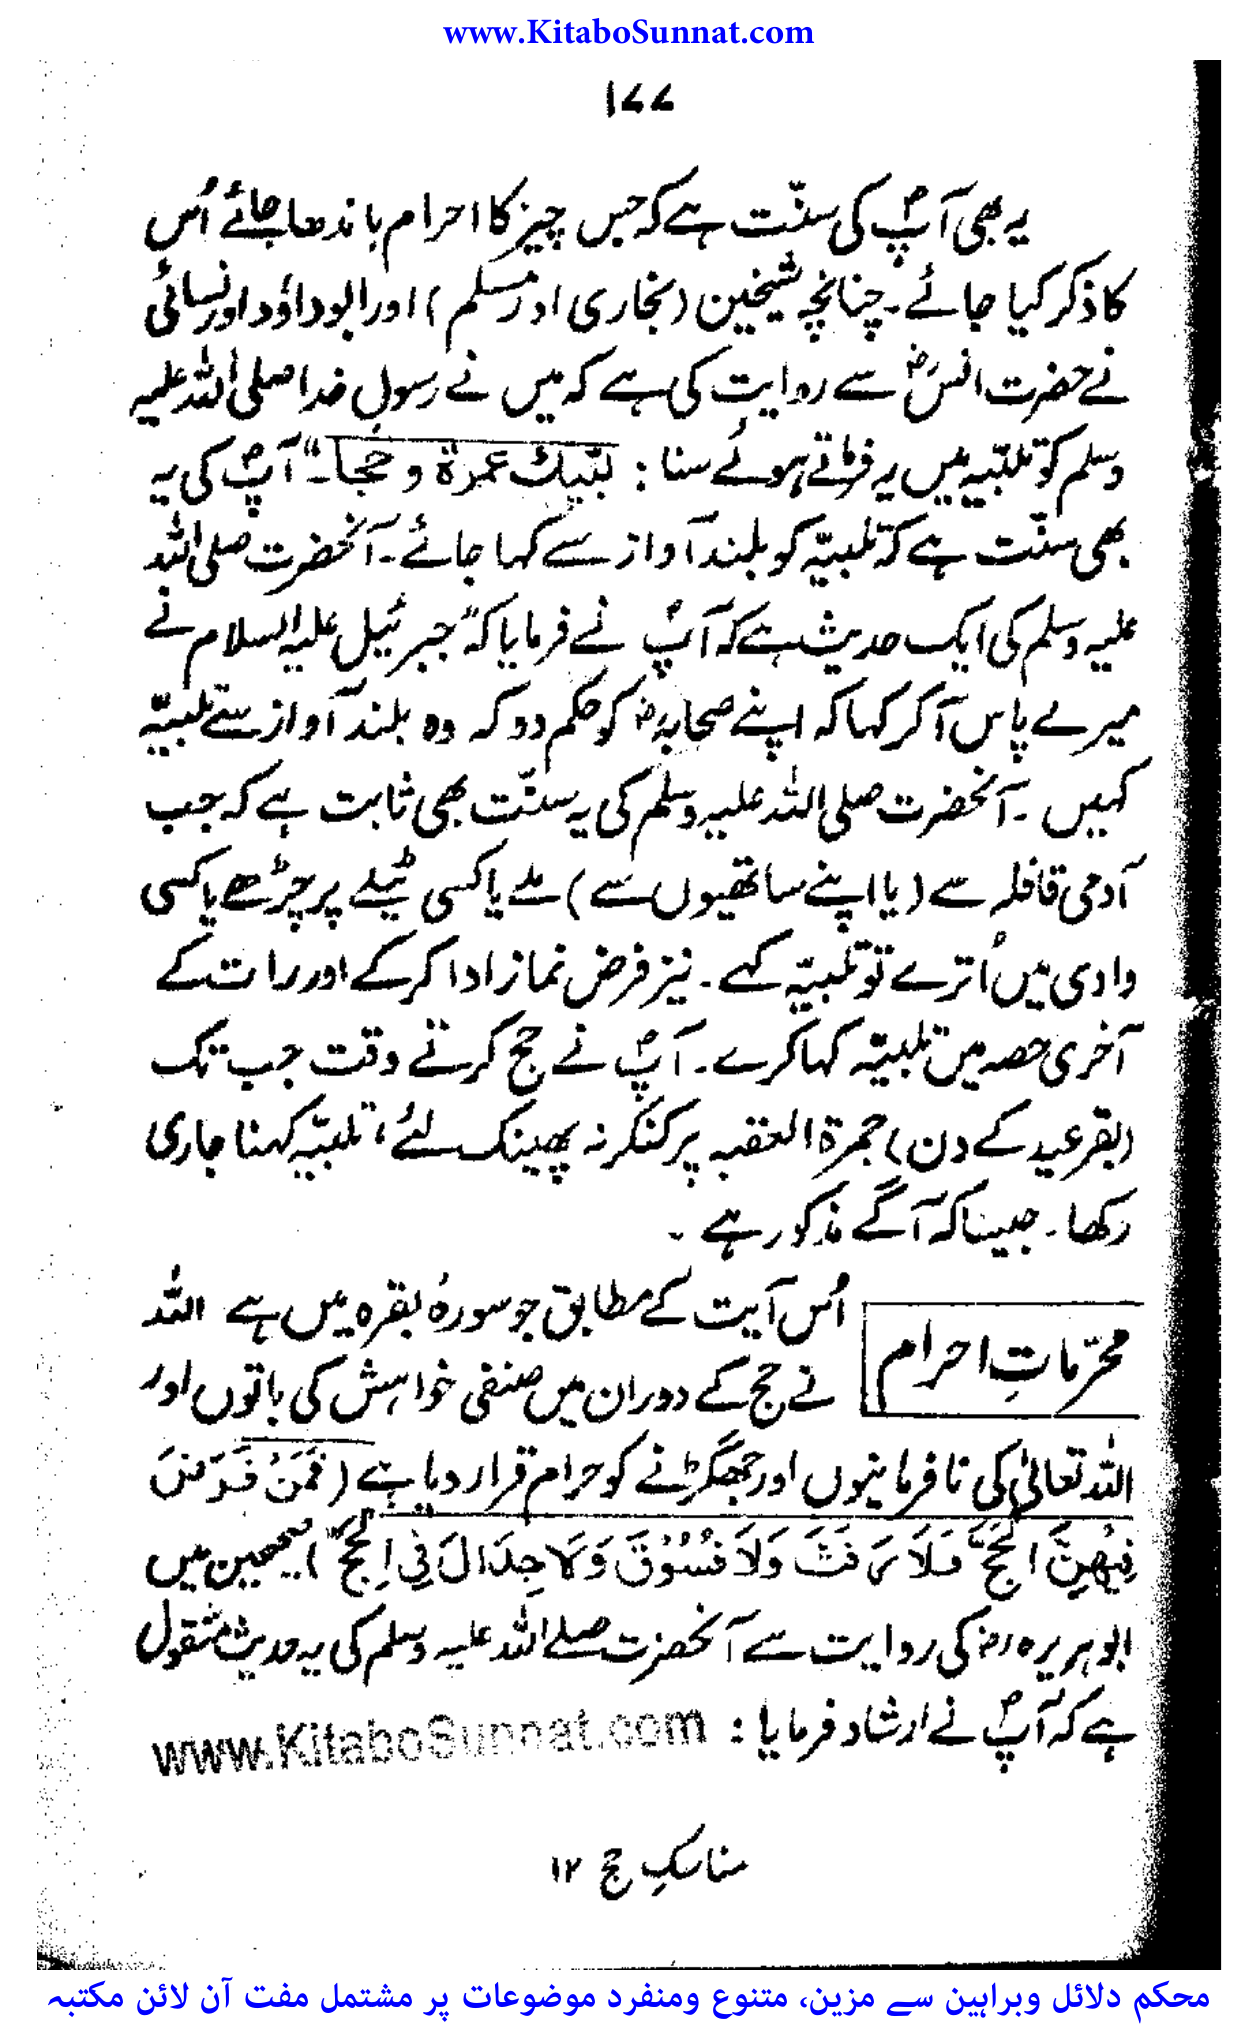 www.KitaboSunnat.com
۱۷۷
یہ بھی آپؐ کی سنّت ہے کہ جس چیز کا احرام باندھا جائے اُس
کا ذکر کیا جائے۔ چنانچہ شیخین (بخاری اور مسلم) اور ابوداؤد اور نسائی
نے حضرت انسؓ سے روایت کی ہے کہ میں نے رسولِ خدا صلی اللہ علیہ
وسلم کو تلبیّہ میں یہ فرماتے ہوئے سنا : لبّیك عمرة و حجا۔" آپؐ کی یہ
بھی سنّت ہے کہ تلبیّہ کو بلند آواز سے کہا جائے۔ آنحضرت صلی اللہ
علیہ وسلم کی ایک حدیث ہے کہ آپؐ نے فرمایا کہ "جبرئیل علیہ السلام نے
میرے پاس آ کر کہا کہ اپنے صحابہؓ کو حکم دو کہ وہ بلند آواز سے تلبیّہ
کہیں ۔ آنحضرت صلی اللہ علیہ وسلم کی یہ سنّت بھی ثابت ہے کہ جب
آدمی قافلہ سے (یا اپنے ساتھیوں سے) ملے یا کسی ٹیلے پر چڑھے یا کسی
وادی میں اُترے تو تلبیّہ کہے ۔ نیز فرض نماز ادا کر کے اور رات کے
آخری حصہ میں تلبیّہ کہا کرے ۔ آپؐ نے حج کرتے وقت جب تک
(بقر عید کے دن) جمرۃ العقبہ پر کنکر نہ پھینک لئے، تلبیّہ کہنا جاری
رکھا ۔ جیسا کہ آگے مذکور ہے ۔
محرّماتِ احرام
اُس آیت کے مطابق جو سورۂ بقرہ میں ہے اللہ
نے حج کے دوران میں صنفی خواہش کی باتوں اور
اللہ تعالیٰ کی نافرمانیوں اور جھگڑنے کو حرام قرار دیا ہے (فَمَنْ فَرَضَ
فِيْهِنَّ الْحَجَّ فَلَا رَفَثَ وَلَا فُسُوْقَ وَلَا جِدَالَ فِي الْحَجِّ) صحیحین میں
ابوہریرہ رض کی روایت سے آنحضرت صلے اللہ علیہ وسلم کی یہ حدیث منقول
ہے کہ آپؐ نے ارشاد فرمایا :
www.KitaboSunnat.com
مناسکِ حج ۱۲
محکم دلائل وبراہین سے مزین، متنوع ومنفرد موضوعات پر مشتمل مفت آن لائن مکتبہ